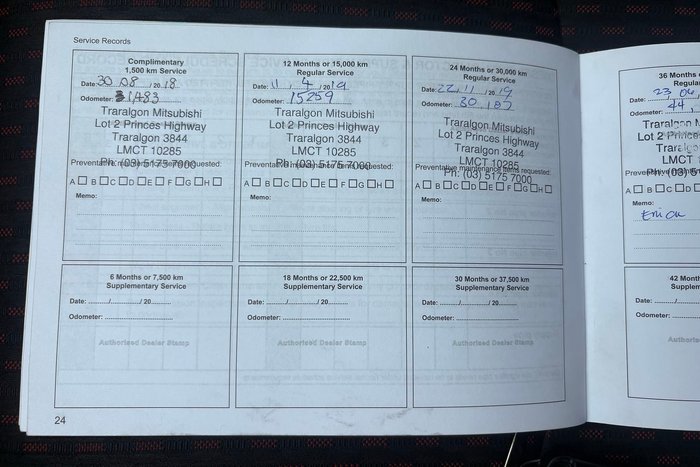 Service Records
Complimentary
1,500 km Service
Date: 30 / 08 / 20 18
Odometer: 1483
Traralgon Mitsubishi
Lot 2 Princes Highway
Traralgon 3844
LMCT 10285
Ph: (03) 5175 7000
Preventative maintenance items requested:
A B C D E F G H
Memo:
12 Months or 15,000 km
Regular Service
Date: 11 / 4 / 20 19
Odometer: 15259
Traralgon Mitsubishi
Lot 2 Princes Highway
Traralgon 3844
LMCT 10285
Ph: (03) 5175 7000
Preventative maintenance items requested:
A B C D E F G H
Memo:
24 Months or 30,000 km
Regular Service
Date: 22 / 11 / 20 19
Odometer: 30,187
Traralgon Mitsubishi
Lot 2 Princes Highway
Traralgon 3844
LMCT 10285
Ph: (03) 5175 7000
Preventative maintenance items requested:
A B C D E F G H
Memo:
36 Months
Regula
Date: 23 / 04
Odometer: 44,
Traralgon M
Lot 2 Princes
Traralgon
LMCT
Ph: (03) 5
Preventative
A B C D
Memo:
6 Months or 7,500 km
Supplementary Service
Date: / / 20
Odometer:
Authorised Dealer Stamp
18 Months or 22,500 km
Supplementary Service
Date: / / 20
Odometer:
Authorised Dealer Stamp
30 Months or 37,500 km
Supplementary Service
Date: / / 20
Odometer:
Authorised Dealer Stamp
42 Month
Supplemen
Date: /
Odometer:
Authorised
24